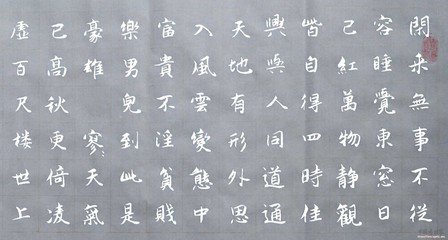 閑來無事不從
容睡覺東窗日
已紅萬物靜觀
皆自得四時佳
興與人同道通
天地有形外思
入風雲變態中
富貴不淫貧賤
樂男兒到此是
豪雄 寥〻天氣
已高秋更倚凌
虛百尺楼世上